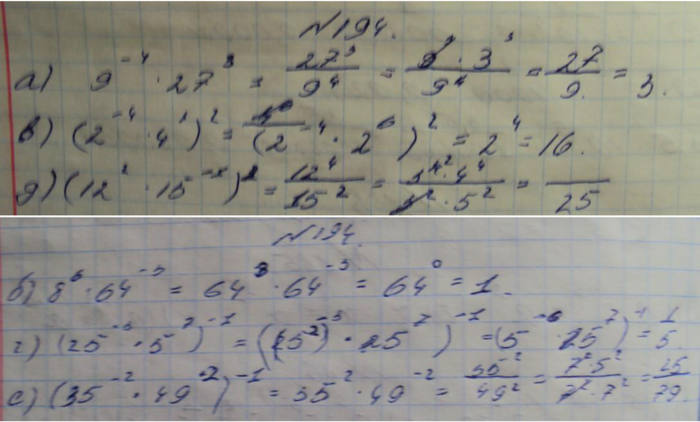 №194.
а) 9⁻⁴ · 27³ = 27³/9⁴ = 9³ · 3³/9⁴ = 27/9 = 3.
в) (2⁻⁴ · 4³)² = (2⁻⁴ · 2⁶)² = 2⁴ = 16.
д) (12² · 15⁻¹)² = 12⁴/15² = 3⁴ · 4⁴/3² · 5² = /25
№194.
б) 8⁶ · 64⁻³ = 64³ · 64⁻³ = 64⁰ = 1.
г) (25⁻³ · 5⁷)⁻¹ = ((5²)⁻³ · 5⁷)⁻¹ = (5⁻⁶ · 5⁷)⁻¹ = 1/5
е) (35⁻² · 49²)⁻¹ = 35² · 49⁻² = 35²/49² = 7² · 5²/7² · 7² = 25/79